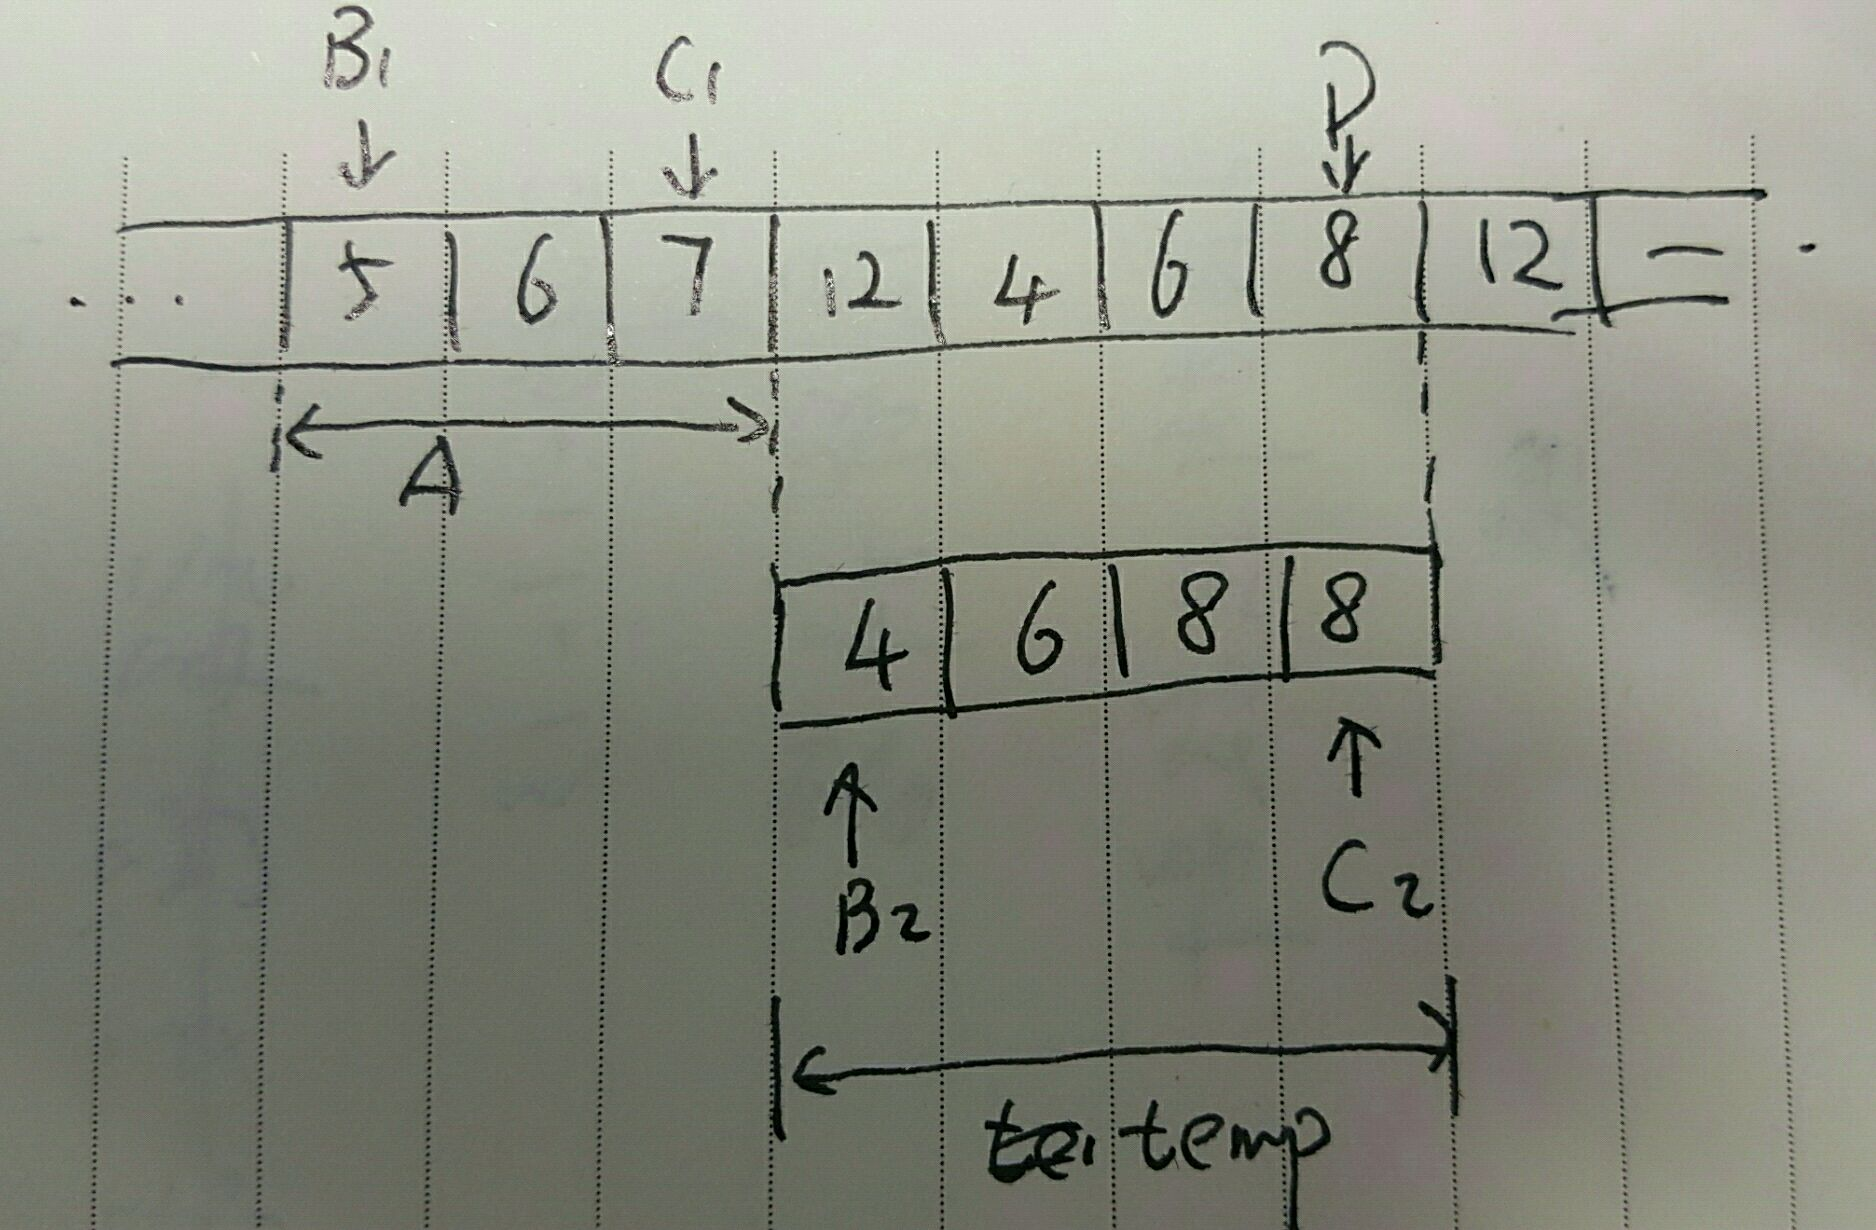 B1 C1 P
... 5 6 7 12 4 6 8 12 — .
A
4 6 8 8
B2 C2
temp